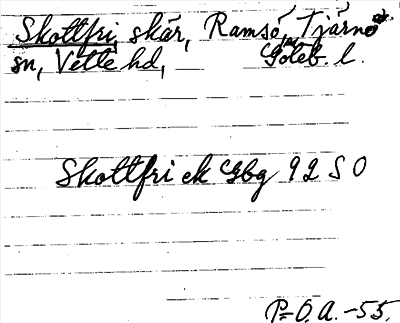 Skottfri, skär, Ramsö, Tjärnö
sn, Vette hd, Göteb. l.
Skottfri ek Gbg 92 S O
P-O. A. -55.